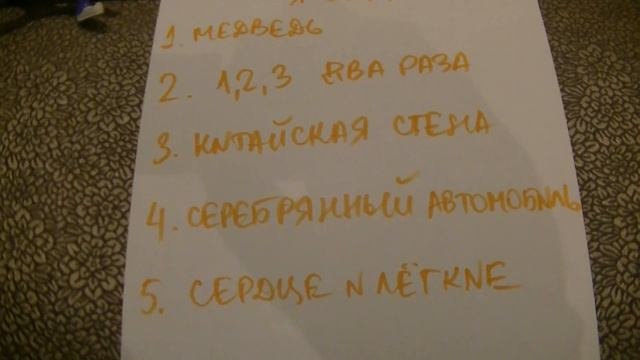 1. МЕДВЕДЬ
2. 1,2,3 ДВА РАЗА
3. КИТАЙСКАЯ СТЕНА
4. СЕРЕБРЯННЫЙ АВТОМОБИЛЬ
5. СЕРДЦЕ И ЛЁГКИЕ